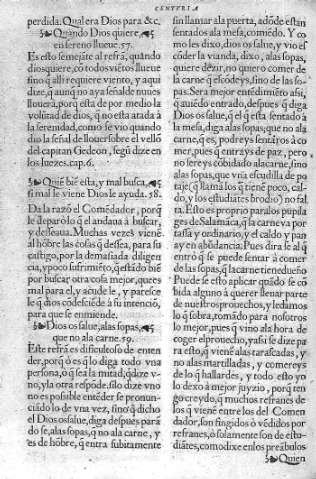 CENTVRIA
perdida. Qual era Dios para &c.
Quando Dios quiere,
en sereno llueue. 57.
Es esto semejãte al refrã, quãdo
dios quiere, cõ todos viẽtos llueue
sino q̃ alli requiere viento, y aqui
dize, q̃ aunq̃ no aya señal de nuues
llouera, porq̃ esta de por medio la
volũtad de dios, q̃ no esta atada a
la serenidad, como se vio quando
dio la señal de llouer sobre el vello
del capitan Gedeon, segũ dize en
los Iuezes. cap. 6.
Quiẽ biẽ esta, y mal busca,
si mal le viene Dios le ayuda. 58.
Da la razõ el Comẽdador, porq̃
le deparo lo q̃ el andaua a buscar,
y desseaua. Muchas vezes vienẽ
al hõbre las cosas q̃ dessea, para su
castigo, por la demasiada diligen
cia, y poco sufrimiẽto, q̃ estãdo biẽ
por buscar otra cosa mejor, que es
mal para el, y acude le, y paresce
le q̃ dios cõdesciẽde à su intenciõ,
para que se emiende.
Dios os salue, alas sopas,
que no ala carne. 59.
Este refrã es dificultoso de enten
der, porq̃ o es q̃ lo diga todo vna
persona, o q̃ sea la mitad, q̃ dize v-
no, y la otra respõde. si lo dize vno
no es possible entẽder se pronun-
ciãdo lo de vna vez, sino q̃ dicho
el Dios os salue, diga despues para
de se, alas sopas, q̃ no ala carne, y
es de hõbre, q̃ entra subitamente
sin llamar ala puerta, adõde estan
sentados ala mesa, comiẽdo. Y co
mo les dixo, dios os salue, y vio es
cõder la vianda, dixo, alas sopas,
quiere dezir, no quiero comer de
la carne q̃ escõdeys, sino de las so-
pas. Sera mejor entẽdimiẽto assi,
q̃ auiẽdo entrado, despues q̃ diga
Dios os salue, q̃ el q̃ esta sentado à
la mesa, diga alas sopas, que no ala
carne, q̃ es, podreys sentaros à co-
mer, pues q̃ entrays de paz, pero
no sereys cõbidado ala carne, sino
alas sopas, que vna escudilla de po
taje, q̃ llamã los q̃ tienẽ poco, cal-
do, y los estudiãtes brodio) no fal
ta. Esto es proprio para los pupila
ges de Salamãca, q̃ la carne va por
tassa y ordinario, y el caldo y pan
ay en abũdancia. Pues dira se al q̃
entrò q̃ se puede sentar à comer
de las sopas, q̃ la carne tiene dueño
Puede se esto aplicar quãdo se cõ
bida alguno à querer lleuar parte
de nuestros prouechos, y le damos
lo q̃ sobra, tomãdo para nosotros
lo mejor, pues q̃ vino ala hora de
coger el prouecho, ya si se dize pa
ra esto, q̃ vienẽ alas tarascadas, y
no alas martilladas, y comereys
de lo q̃ hallardes, y todo esto yo
lo dexo à mejor juyzio, porq̃ ten
go creydo, q̃ muchos refranes de
los q̃ viene entre los del Comen
dador, son fingidos ò vẽdidos por
refranes, ò solamente son de estu-
diãtes, como dixe en los preãbulos
Quien